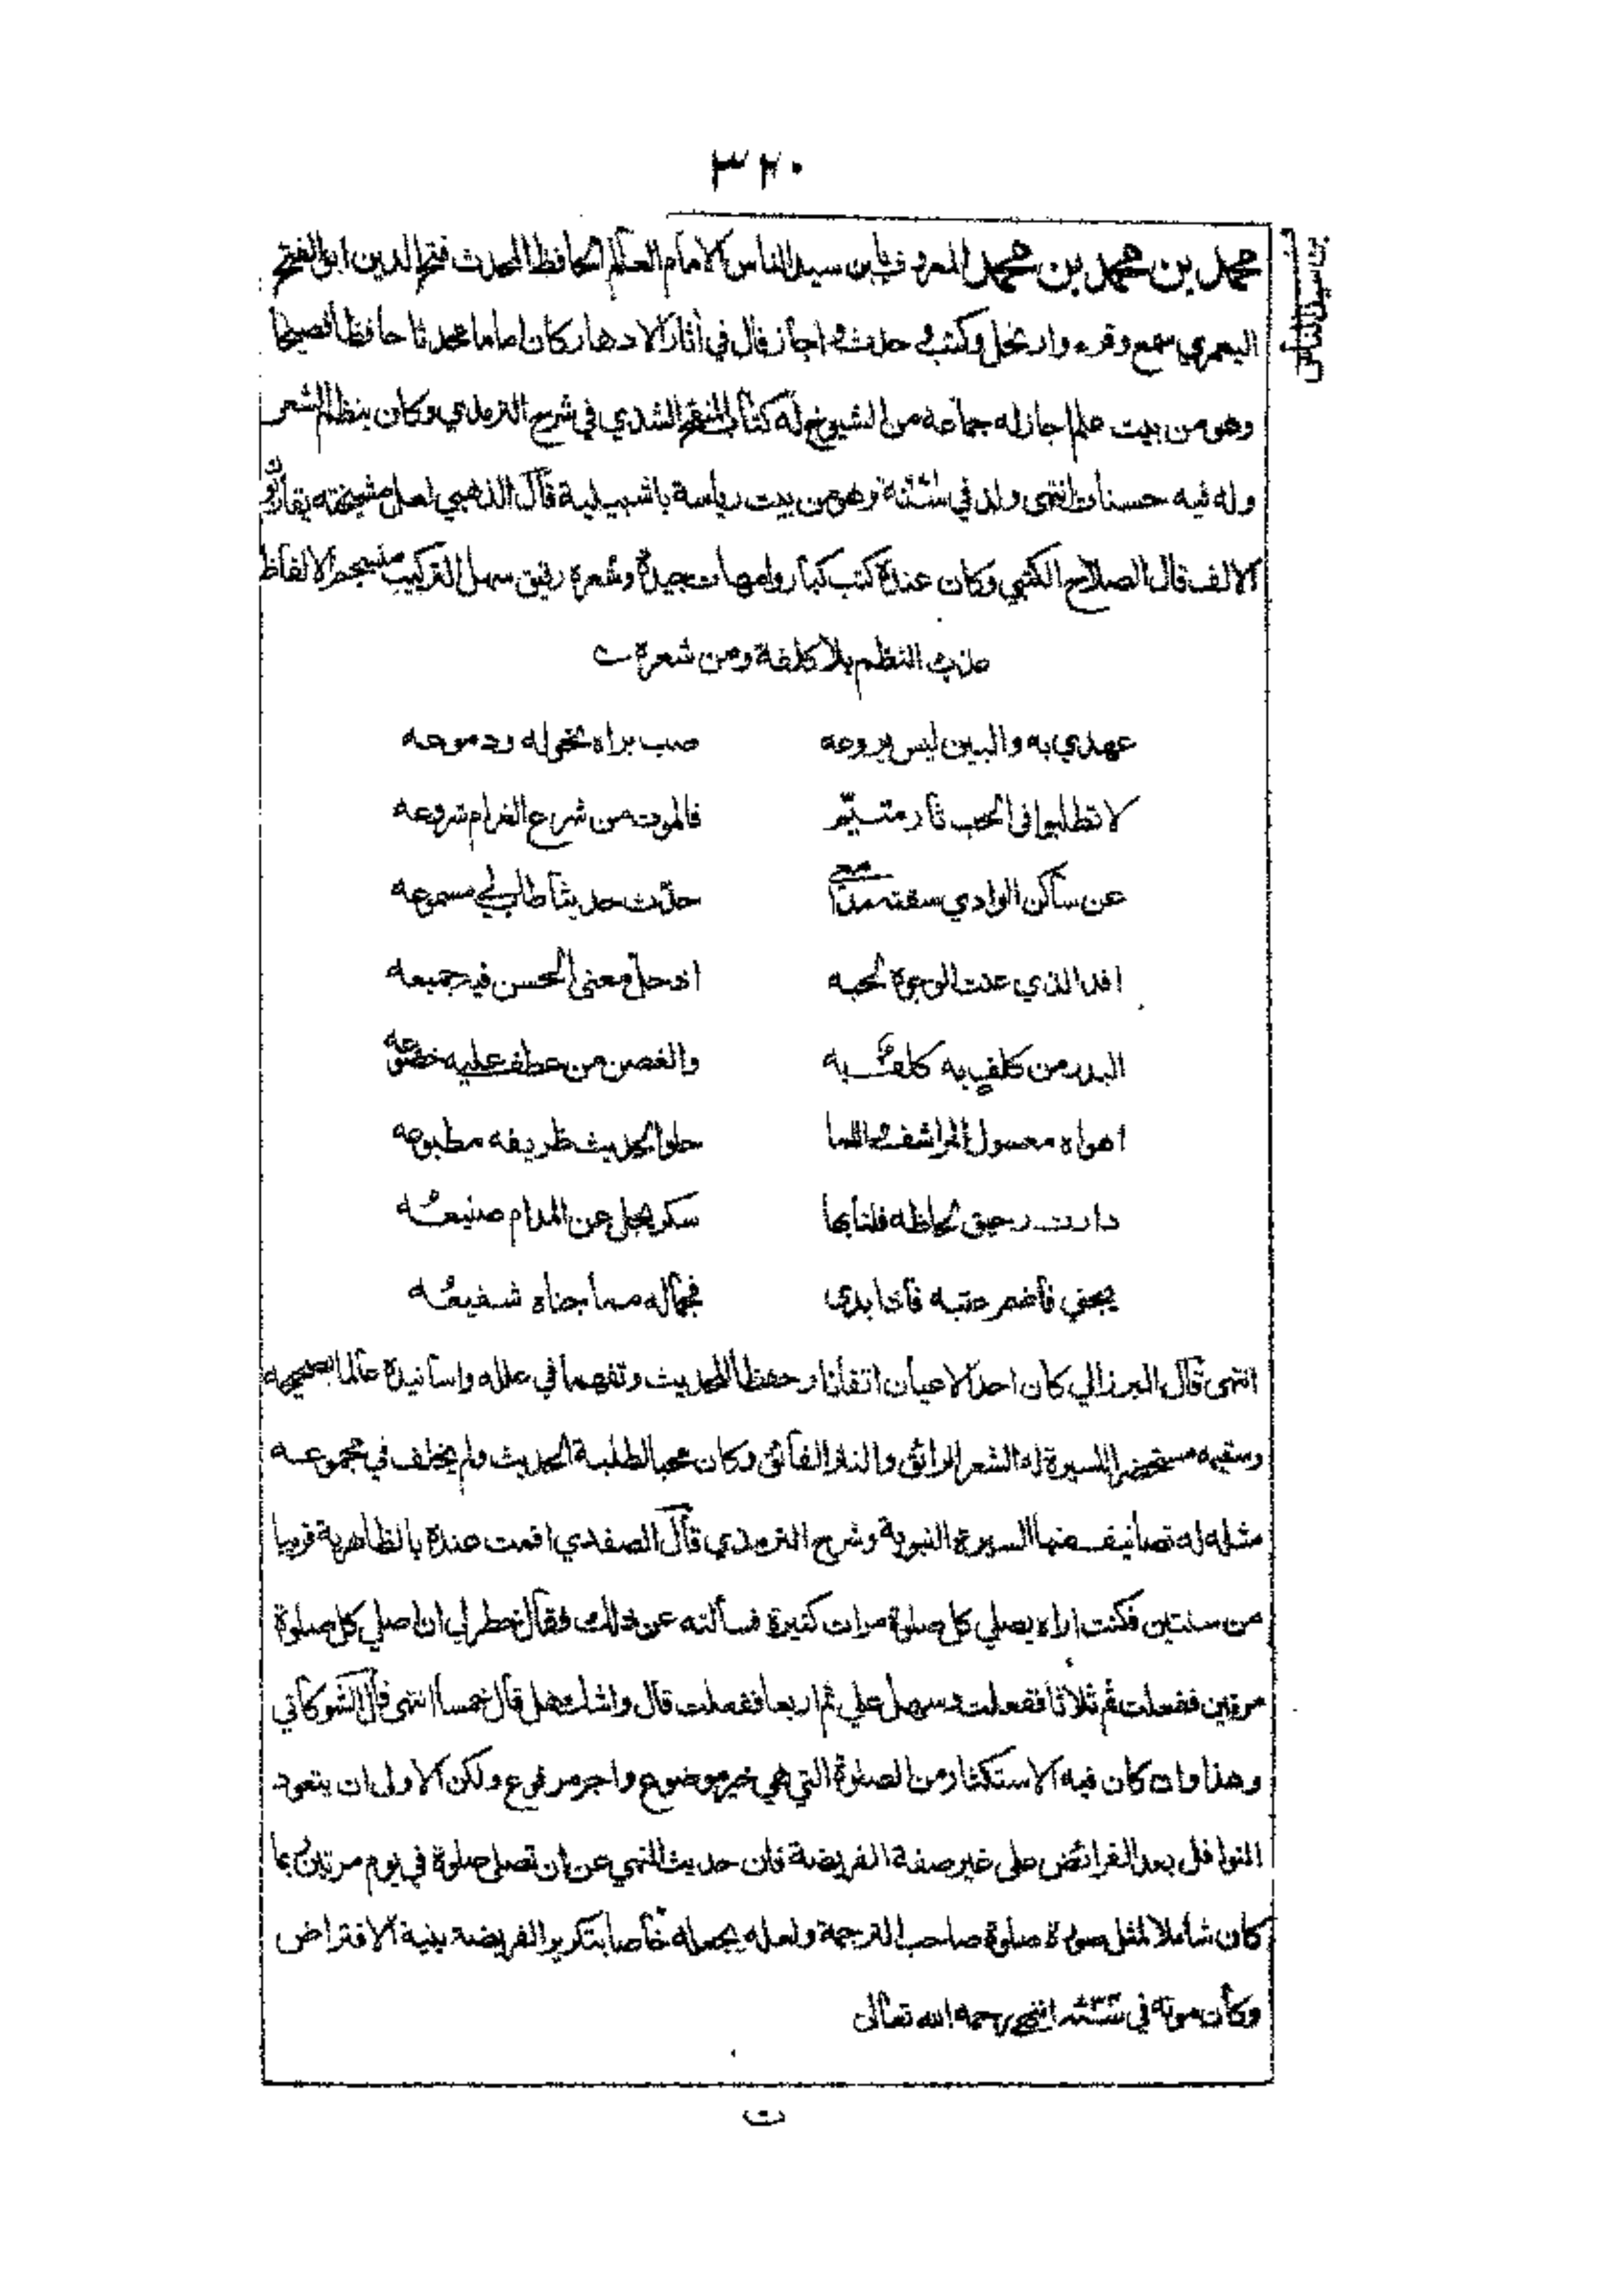 ٣٢٠
ابن سيد الناس
محمد بن محمد بن محمد المعروف بابن سيد الناس الامام العالم الحافظ المحدث فتح الدين ابو الفتح
اليعمري سمع وقرء وارتحل وكتب و حدث و اجاز قال في آثار الادهار كان اماما محدثا حافظا فصيحا
وهو من بيت علم اجاز له جماعة من الشيوخ له كتاب المنقح الشذي في شرح الترمذي وكان ينظم الشعر
وله فيه حسنات انتهى ولد في وهو من بيت رياسة باشبيلية قال الذهبي لعل مشيخته يقاربون
الالف قال الصلاح الكتبي وكان عنده كتب كبار وامهات جيدة وشعره رقيق سهل التركيب منسجم الالفاظ
عذب النظم بلا كلفة ومن شعره
عهدي به والبين ليس يروعه صب براه نحوله ودموعه
لا تطلبوا في الحب ثار متيّم فالموت من شرع الغرام شروعه
عن ساكن الوادي سقته مدامعي حدّث حديثا طاب لي مسموعه
افد الذي عنت الوجوه لحبه اذ حل معنى الحسن فيه جميعه
البدر من كلفٍ به كلفٌ به والغصن من عطف عليه خضوعه
اهواه معسول المراشف واللما حلو الحديث ظريفه مطبوعه
دارت رحيق لحاظه فلنا بها سكر يجل عن المدام صنيعُه
يجني فاضمر عتبه فاذا بدى فجماله مما جناه شفيعُه
انتهى قال البرزالي كان احد الاعيان اتقانا وحفظا للحديث وتفهما في علله واسانيده عالما بصحيحه
وسقيمه مستحضرا للسيرة له الشعر الرائق والنثر الفائق وكان محبا لطلبة الحديث ولم يخلف في مجموعه
مثله له تصانيف منها السيرة النبوية وشرح الترمذي قال الصفدي اقمت عنده بالظاهرية قريبا
من سنتين فكنت اراه يصلي كل صلوة مرات كثيرة فسألته عن ذلك فقال خطر لي ان اصلي كل صلوة
مرتين ففعلت ثم ثلاثا ففعلت وسهل علي ثم اربعا ففعلت قال واشك هل قال خمسا انتهى قال الشوكاني
وهذا وان كان فيه الاستكثار من الصلوة التي هي خير موضوع واجر مرفوع ولكن الاولى ان يتعود
النوافل بعد الفرائض على غير صفة الفريضة فان حديث النهي عن ان تصلى صلوة في يوم مرتين ربما
كان شاملا لمثل صورة صلوة صاحب الترجمة ولعله يجعله خاصا بتكرير الفريضة بنية الافتراض
وكان موته في انتهى رحمه الله تعالى
ت